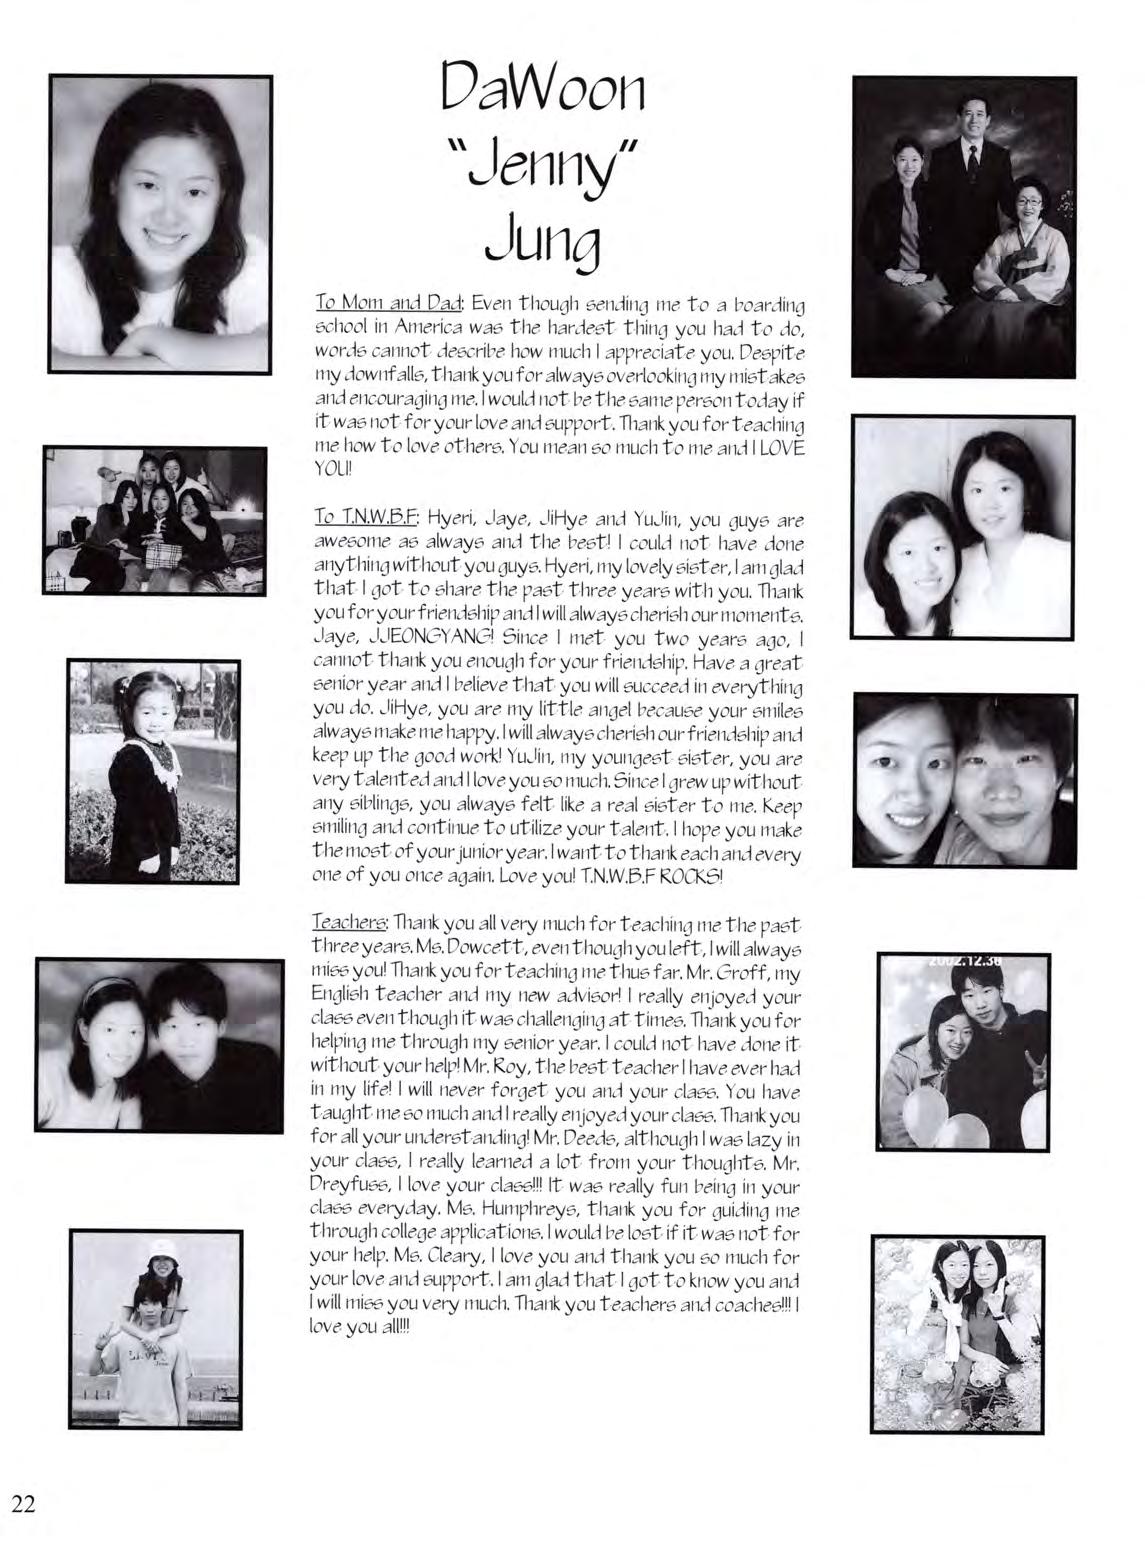 DaWoon
"Jenny"
Jung
To Mom and Dad: Even though sending me to a boarding
school in America was the hardest thing you had to do,
words cannot describe how much I appreciate you. Despite
my downfalls, thank you for always overlooking my mistakes
and encouraging me. I would not be the same person today if
it was not for your love and support. Thank you for teaching
me how to love others. You mean so much to me and I LOVE
YOU!
To T.N.W.B.F: Hyeri, Jaye, JiHye and YuJin, you guys are
awesome as always and the best! I could not have done
anything without you guys. Hyeri, my lovely sister, I am glad
that I got to share the past three years with you. Thank
you for your friendship and I will always cherish our moments.
Jaye, JJEONGYANG! Since I met you two years ago, I
cannot thank you enough for your friendship. Have a great
senior year and I believe that you will succeed in everything
you do. JiHye, you are my little angel because your smiles
always make me happy. I will always cherish our friendship and
keep up the good work! YuJin, my youngest sister, you are
very talented and I love you so much. Since I grew up without
any siblings, you always felt like a real sister to me. Keep
smiling and continue to utilize your talent. I hope you make
the most of your junior year. I want to thank each and every
one of you once again. Love you! T.N.W.B.F ROCKS!
Teachers: Thank you all very much for teaching me the past
three years. Ms. Dowcett, even though you left, I will always
miss you! Thank you for teaching me thus far. Mr. Groff, my
English teacher and my new advisor! I really enjoyed your
class even though it was challenging at times. Thank you for
helping me through my senior year. I could not have done it
without your help! Mr. Roy, the best teacher I have ever had
in my life! I will never forget you and your class. You have
taught me so much and I really enjoyed your class. Thank you
for all your understanding! Mr. Deeds, although I was lazy in
your class, I really learned a lot from your thoughts. Mr.
Dreyfuss, I love your class!!! It was really fun being in your
class everyday. Ms. Humphreys, thank you for guiding me
through college applications. I would be lost if it was not for
your help. Ms. Cleary, I love you and thank you so much for
your love and support. I am glad that I got to know you and
I will miss you very much. Thank you teachers and coaches!!! I
love you all!!!
2002.12.30
22